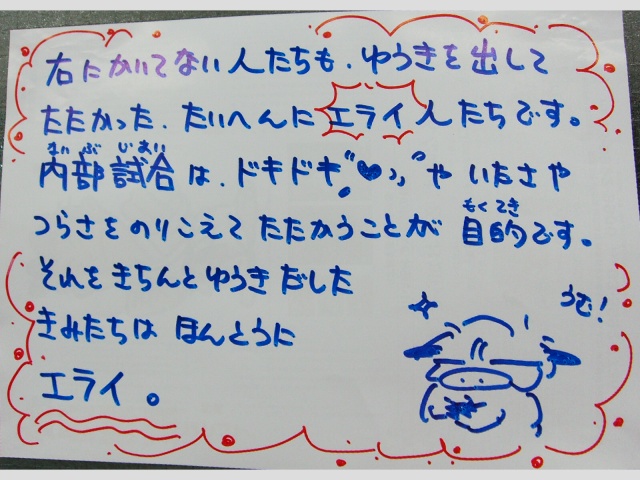 右にかいてない人たちも、ゆうきを出して
たたかった、たいへんにエライ人たちです。
ないぶじあい
内部試合は、ドキドキ”♥”やいたさや
つらさをのりこえてたたかうことが目的です。
もくてき
それをきちんとゆうきだした
きみたちはほんとうに
エライ。
うむ!